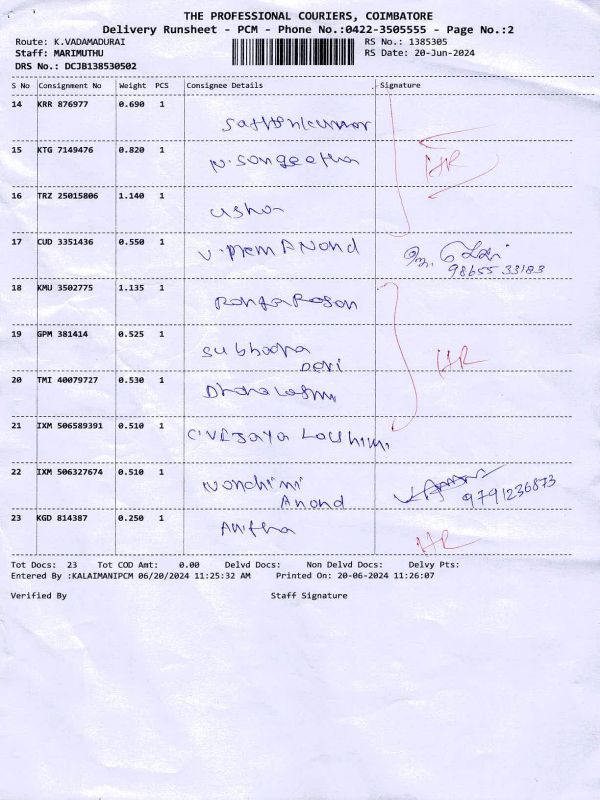 THE PROFESSIONAL COURIERS, COIMBATORE
Delivery Runsheet - PCM - Phone No.:0422-3505555 - Page No.:2
Route: K.VADAMADURAI RS No.: 1385305
Staff: MARIMUTHU RS Date: 20-Jun-2024
DRS No.: DCJB138530502
S No Consignment No Weight PCS Consignee Details Signature
14 KRR 876977 0.690 1
Sathishkumar
15 KTG 7149476 0.820 1
N. Sangeetha HR
16 TRZ 25015806 1.140 1
Usha
17 CUD 3351436 0.550 1
V. Prem Anand
98655 33183
18 KMU 3502775 1.135 1
19 GPM 381414 0.525 1
Subhadra
Devi HR
20 TMI 40079727 0.530 1
21 IXM 506589391 0.510 1
22 IXM 506327674 0.510 1
Anand 9791236873
23 KGD 814387 0.250 1
Anitha
HR
Tot Docs: 23 Tot COD Amt: 0.00 Delvd Docs: Non Delvd Docs: Delvy Pts:
Entered By :KALAIMANIPCM 06/20/2024 11:25:32 AM Printed On: 20-06-2024 11:26:07
Verified By Staff Signature